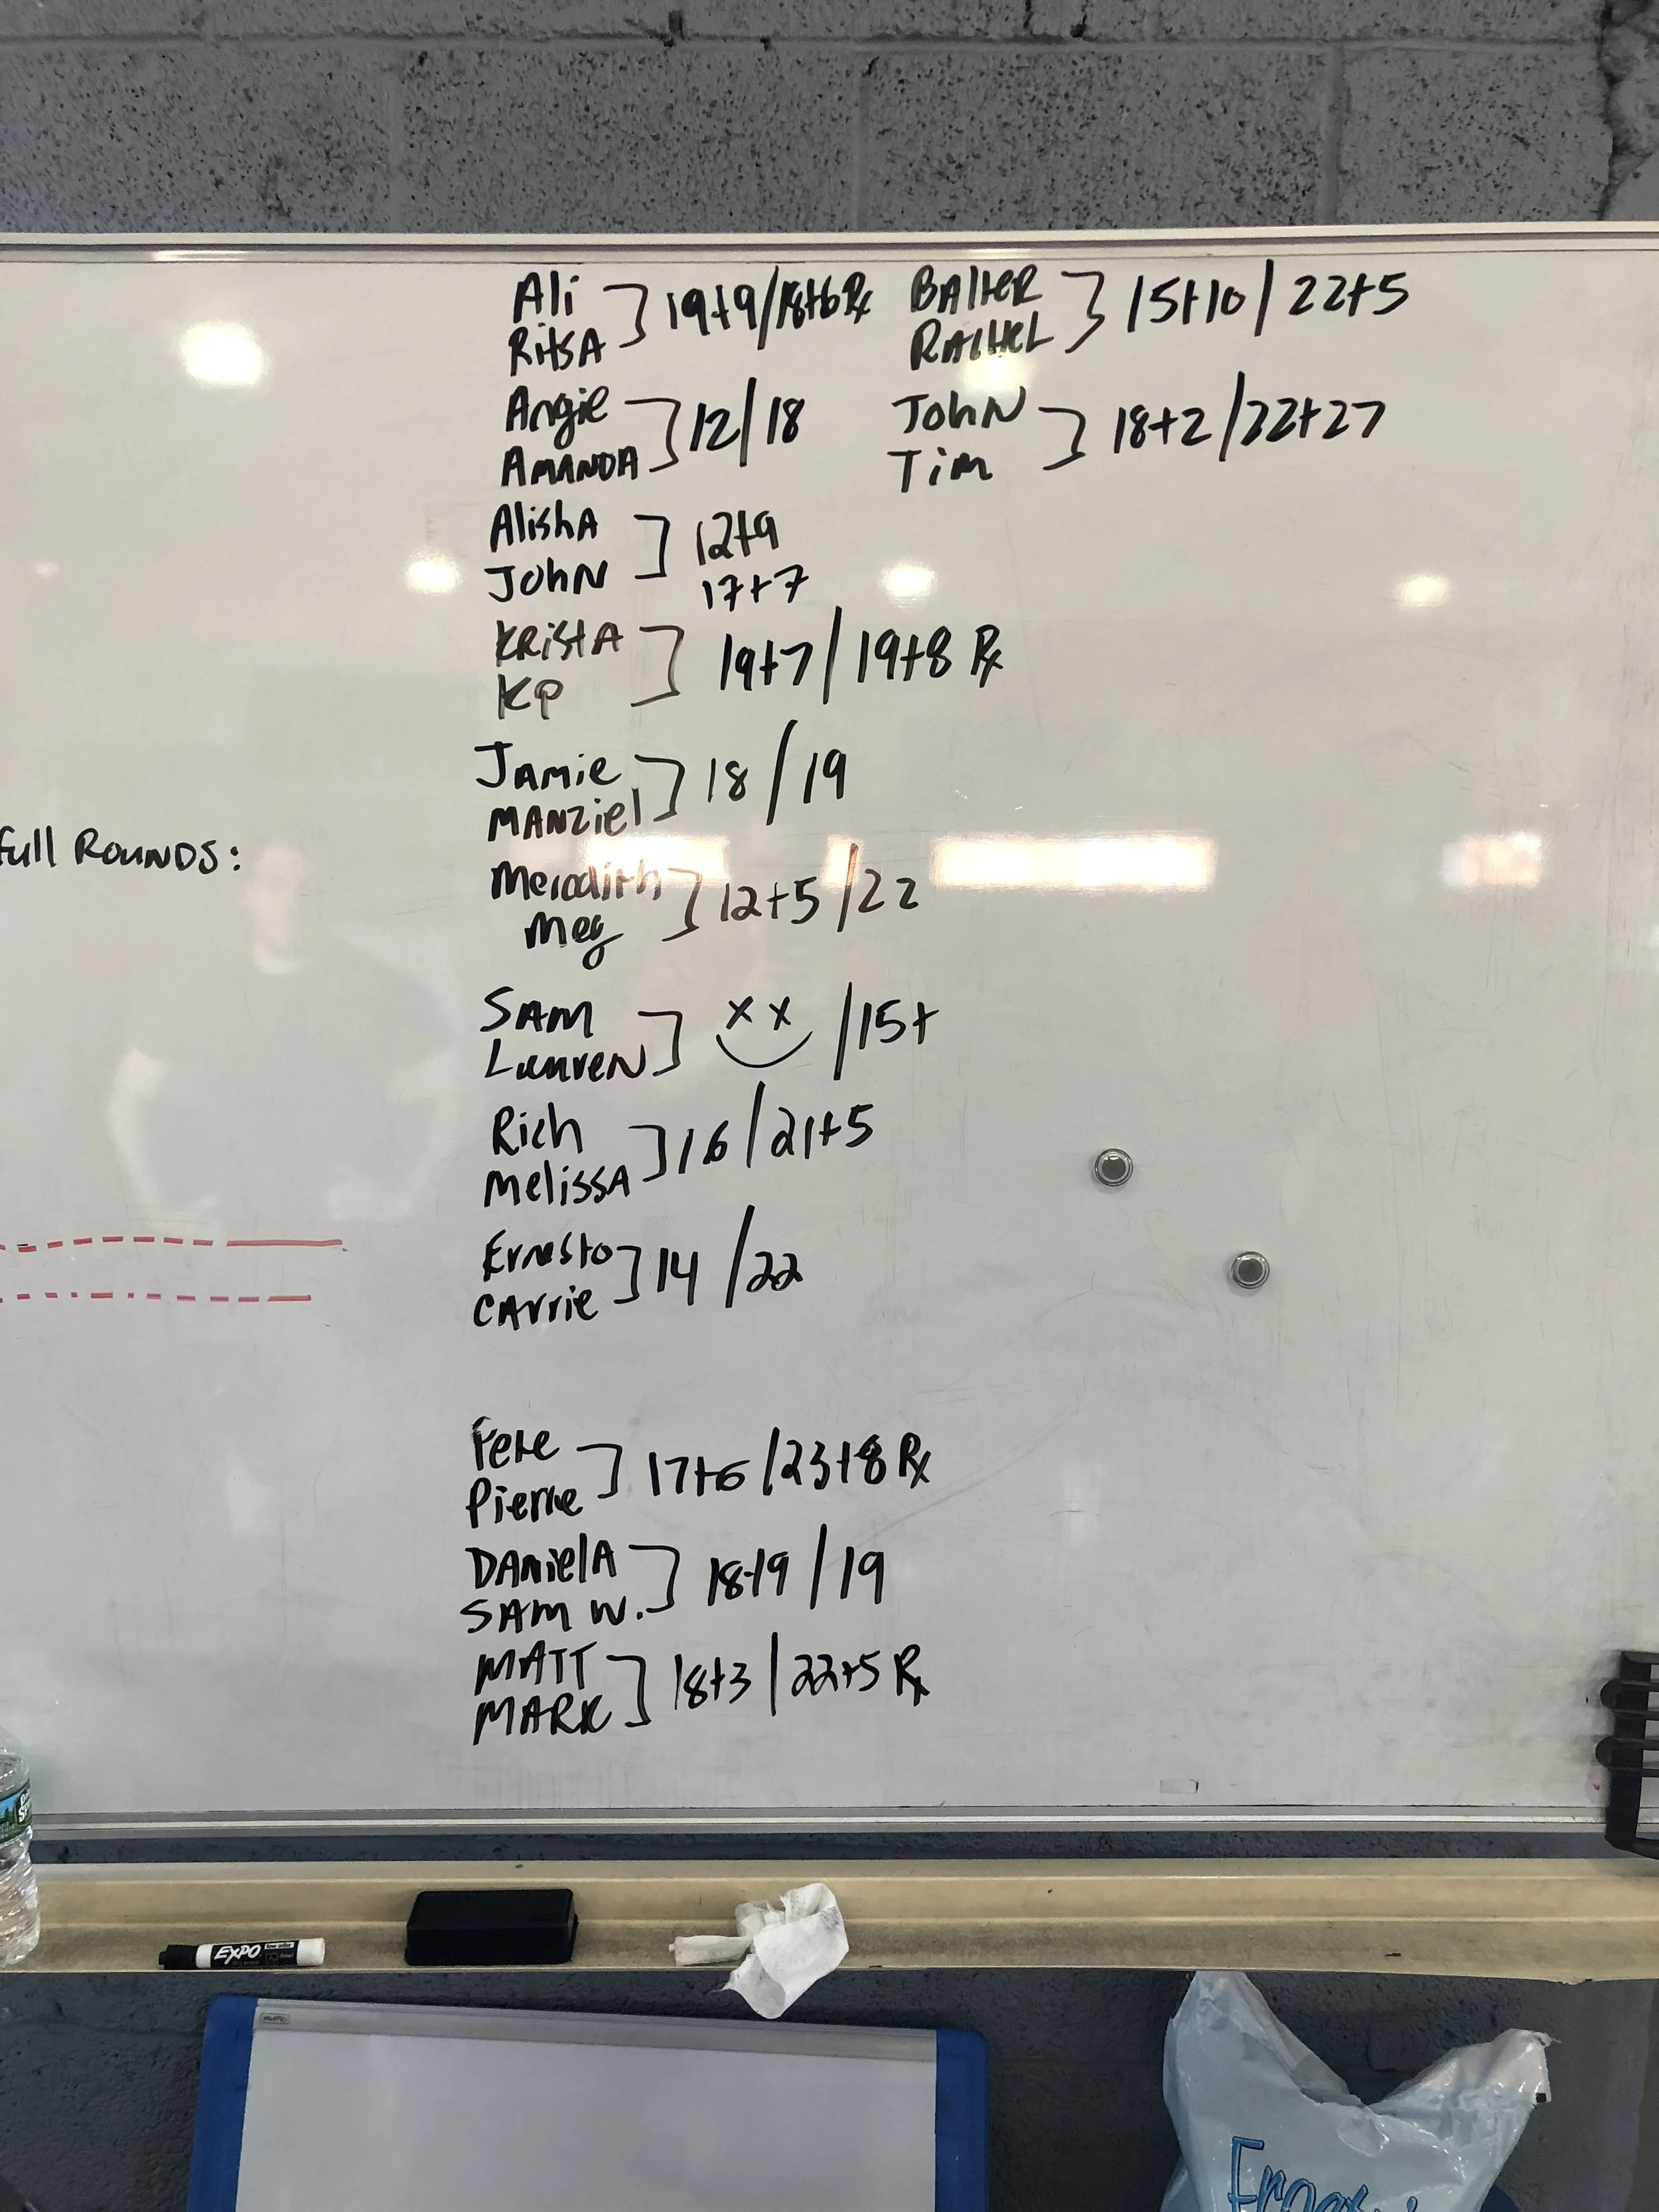 Ali
RitsA
19+9/18+6 Rx
Angie
AMANDA
12/18
AlishA
JohN
12+9
17+7
KRistA
KP
19+7/19+8 Rx
JAmie
MANZiel
18/19
Meredith
Meg
12+5/22
SAM
LaureN
x x /15+
Rich
MelissA
16/21+5
Ernesto
CArrie
14/22
Pete
Pierre
17+6/23+8 Rx
DANielA
SAM W.
18+9/19
MATT
MARK
18+3/22+5 Rx
BAltER
RAcHeL
15+10/22+5
JohN
Tim
18+2/22+27
full ROUNDS:
EXPO